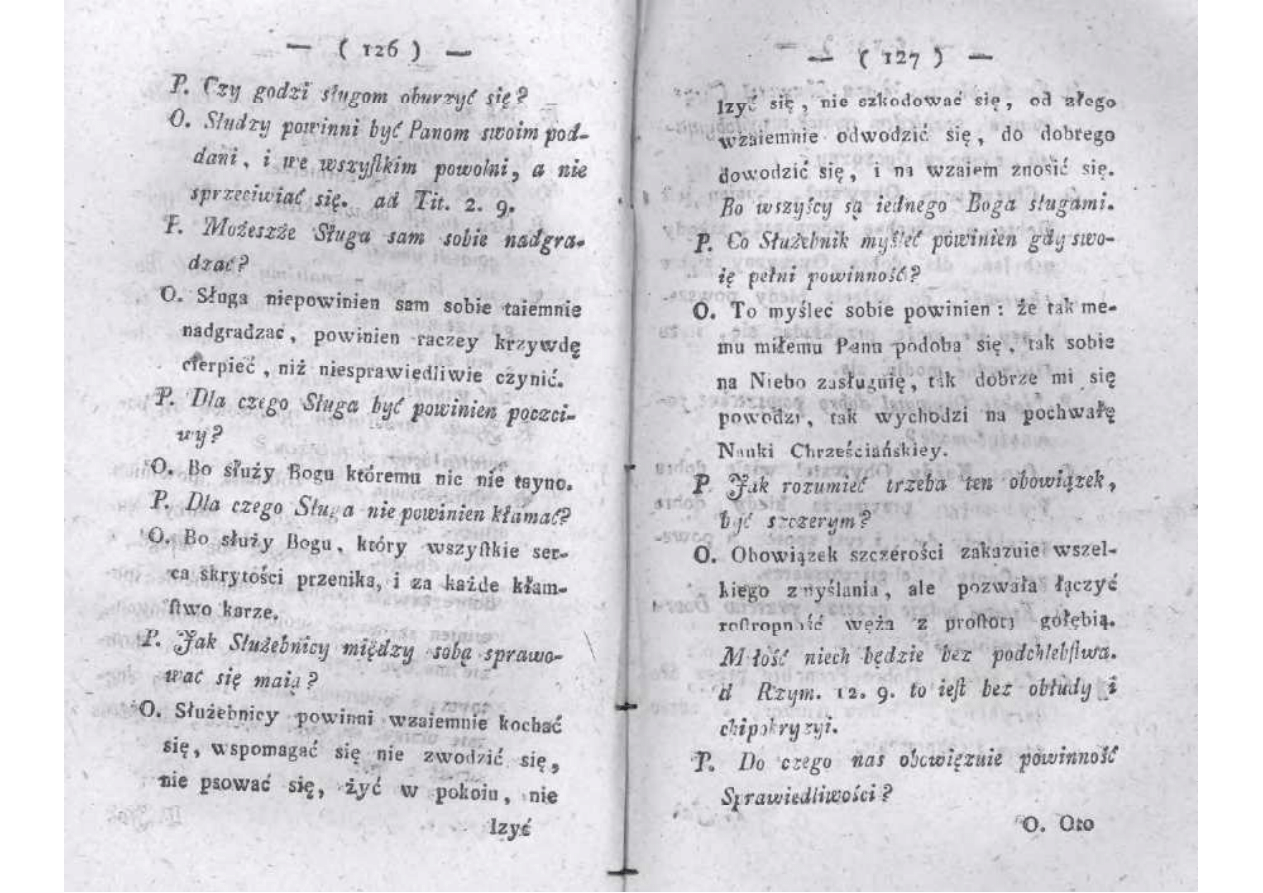 — ( 126 ) —
P. Czy godzi sługom oburzyć się?
O. Słudzy powinni być Panom swoim pod-
dani, i we wszyſtkim powolni, a nie
sprzeciwiać się. ad Tit. 2. 9.
P. Możeszże Sługa sam sobie nadgra-
dzać?
O. Sługa niepowinien sam sobie taiemnie
nadgradzać, powinien raczey krzywdę
cierpieć, niż niesprawiedliwie czynić.
P. Dla czego Sługa być powinien poczci-
wy?
O. Bo służy Bogu któremu nic nie tayno.
P. Dla czego Sługa nie powinien kłamać?
O. Bo służy Bogu, który wszyſtkie ser-
ca skrytości przenika, i za każde kłam-
ſtwo karze.
P. Jak Służebnicy między sobą sprawo-
wać się maią?
O. Służebnicy powinni wzaiemnie kochać
się, wspomagać się nie zwodzić się,
nie psować się, żyć w pokoiu, nie
lzyć
— ( 127 ) —
lzyć się, nie szkodować się, od złego
wzaiemnie odwodzić się, do dobrego
dowodzić się, i na wzaiem znosić się.
Bo wszyścy są iednego Boga sługami.
P. Co Służebnik myśleć powinien gdy swo-
ię pełni powinność?
O. To myślec sobie powinien: że tak me-
mu miłemu Panu podoba się, tak sobie
na Niebo zasługuię, tak dobrze mi się
powodzi, tak wychodzi na pochwałę
Nauki Chrześciańskiey.
P. Jak rozumieć trzeba ten obowiązek,
być szczerym?
O. Obowiązek szczerości zakazuie wszel-
kiego zmyślania, ale pozwala łączyć
roſtropność węża z proſtotą gołębią.
Miłość niech będzie bez podchlebſtwa.
d Rzym. 12. 9. to ieſt bez obłudy i
chipokryzyi.
P. Do czego nas obowięzuie powinność
Sprawiedliwości?
O. Oto